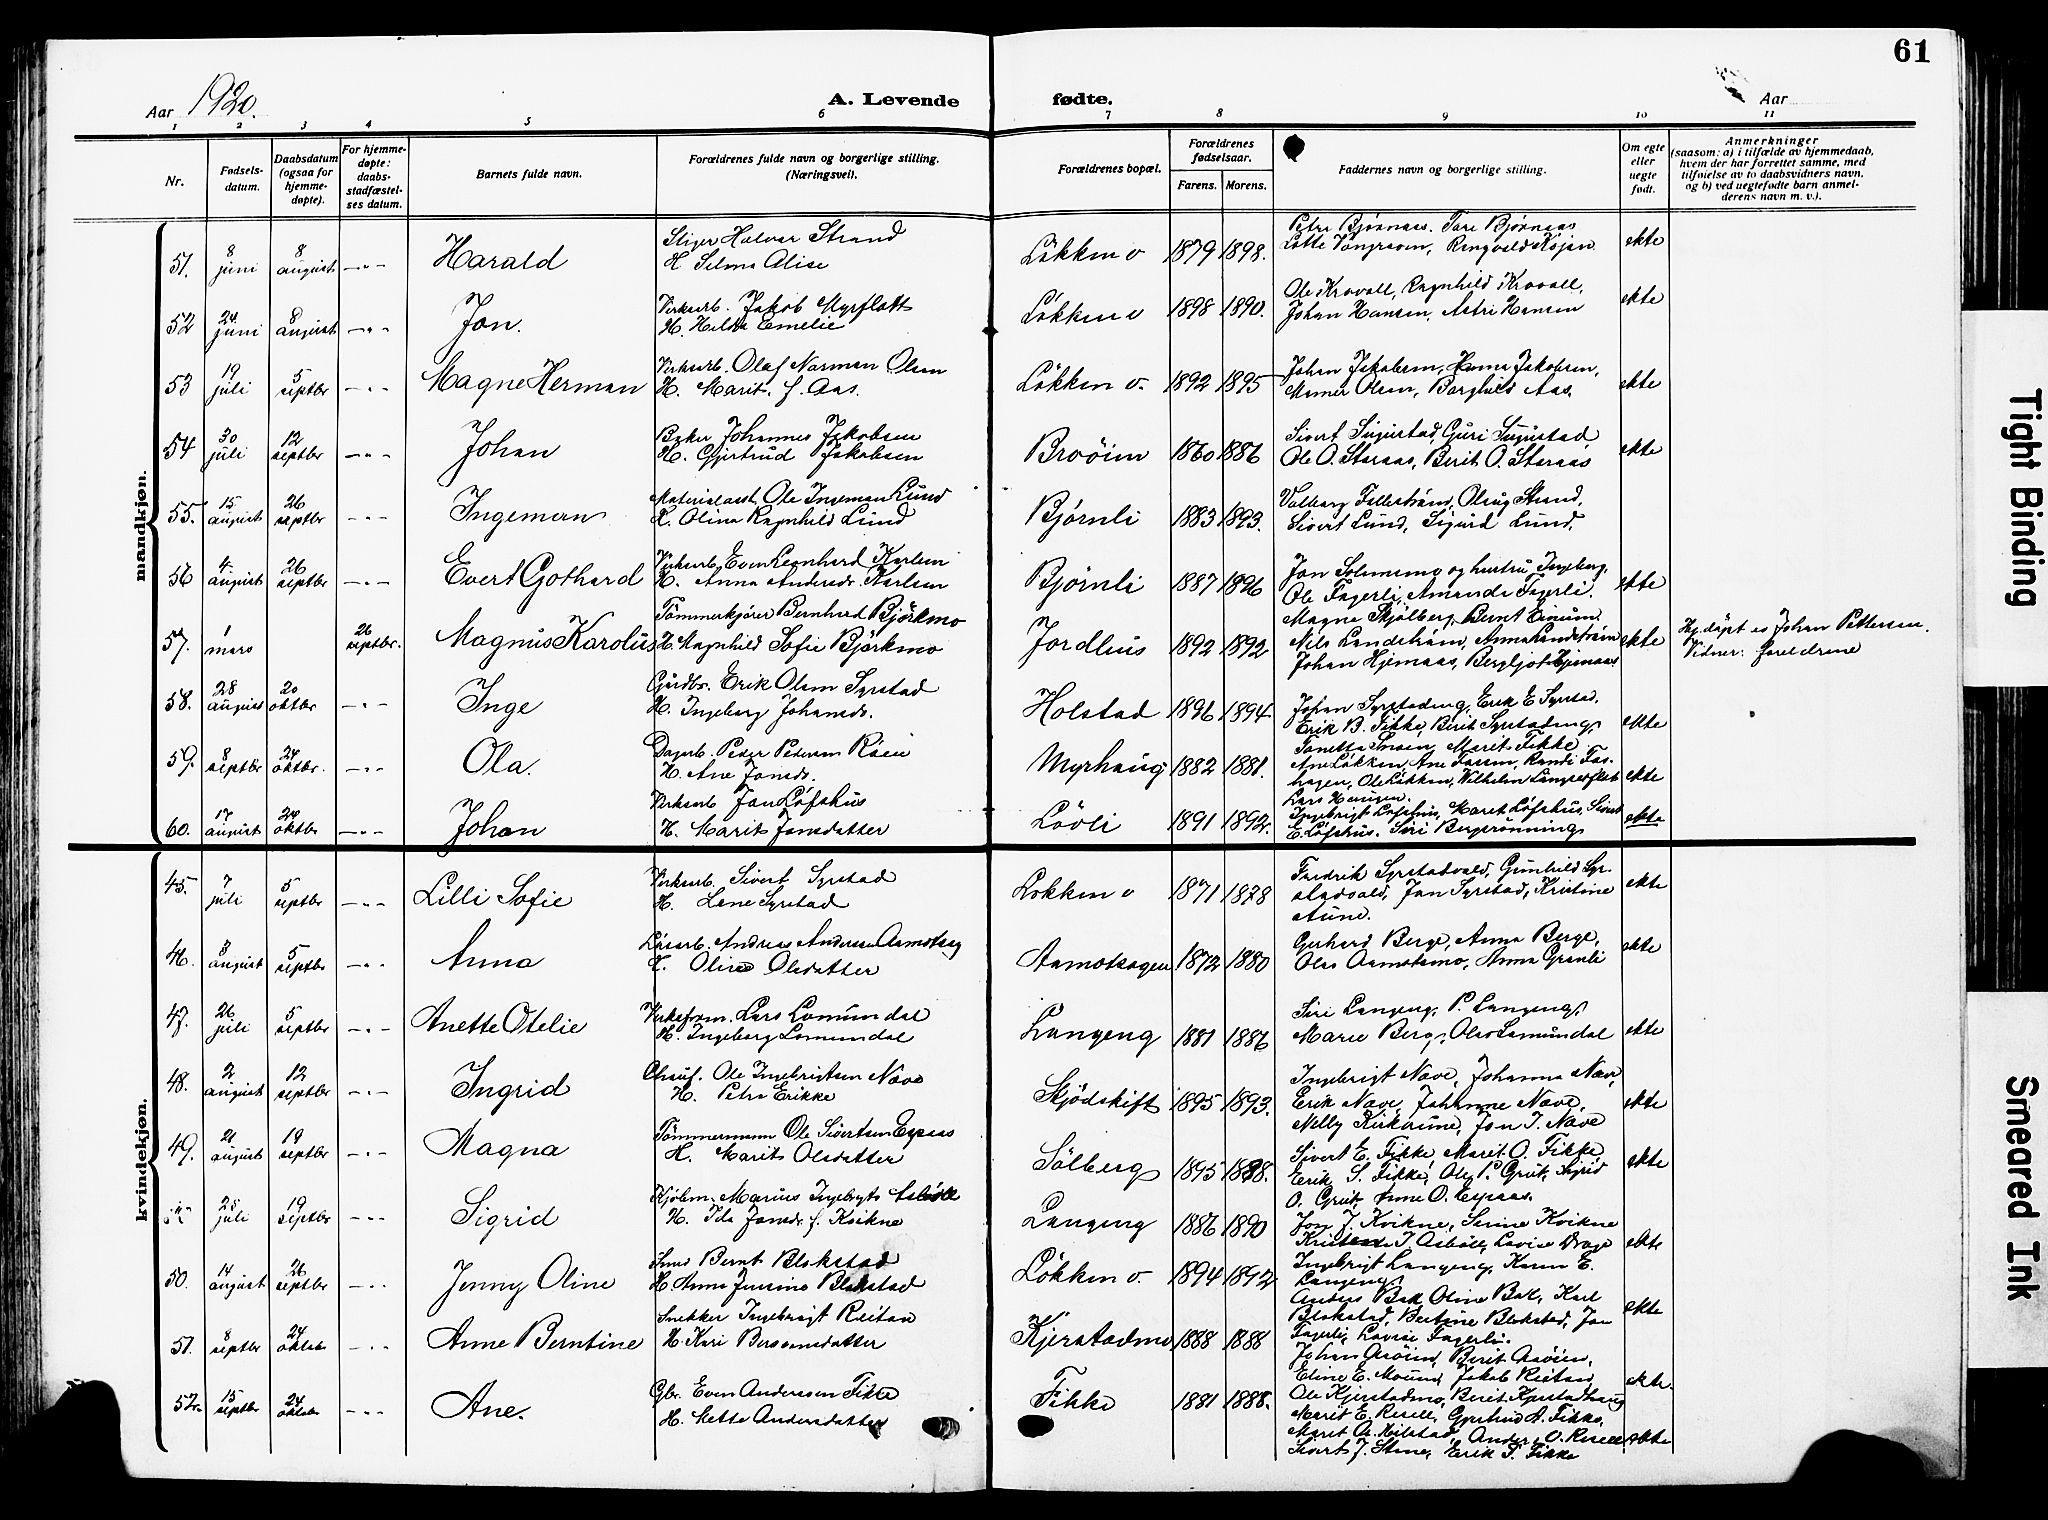 61
Aar 1920. A. Levende fødte. Aar
1 2 3 4 5 6 7 8 9 10 11
Nr. Fødsels-datum. Daabsdatum (ogsaa for hjemme-døpte). For hjemme-døpte: daabs-stadfæstel-ses datum. Barnets fulde navn. Forældrenes fulde navn og borgerlige stilling. (Næringsvei). Forældrenes bopæl. Forældrenes fødselsaar. Farens. Morens. Faddernes navn og borgerlige stilling. Om egte eller uegte født. Anmerkninger (saasom: a) i tilfælde av hjemmedaab, hvem der har forrettet samme, med tilføielse av to daabsvidners navn, og b) ved uegtefødte barn anmel-derens navn m. v.).
mandkjøn.
51. 8 juni 8 august -"- Harald Stiger Halvar Strand H. Selma Alise Løkken v 1879 1898. Petra Bjørnaas. Tore Bjørnaas Lotte Vongraven, Ringvald Kojan ekte
52 24 juni 8 august -"- Jon. Verksarb. Jakob Myrflott H. Hilda Emelie Løkken v 1898 1890. Ole Krovoll, Ragnhild Krovoll, Johan Hansen, Astri Hansen ekte
53 19 juli 5 septbr -"- Magne Herman Verksarb. Olaf Norman Olsen H. Marit. f. Aas. Løkken v. 1892 1895 Johan Jakobsen, Hanna Jakobsen, Olsen, Borghild Aas. ekte
54 30 juli 12 septbr -"- Johan Baker Johannes Jakobsen H. Gjertrud Jakobsen Broöien 1860 1886 Sivert Sugustad, Guri Sugustad, Ole O. Staraas, Berit O. Staraas ekte
55. 15 august 26 septbr -"- Ingeman Ole Ingeman Lund H. Olina Ragnhild Lund Bjørnli 1883 1893. Valborg Olaug Strand, Sivert Lund, Sigurd Lund. ekte
56 4 august 26 septbr -"- Evert Gothard Verksarb. Even Leonhard Karlsen H. Anna Andersdr. Karlsen Bjørnli 1887 1896 Jon Solemsmo og hustru Ingeborg, Ole Fagerli, Amanda Fagerli. ekte
57. 1 mars 26 septbr. Magnus Karolius Tømmerkjører Bernhard Björkmo H. Magnhild Sofie Björkmo Jordhus 1892 1892 Magne Skjølberg, Bernt Einum Nils Landstrøm, Anna Landstrøm Johan Hjemaas, Bergljot Hjemaas ekte Hj.døpt av Johan Pettersen. Vidner: foreldrene
58. 28 august 20 oktbr -"- Inge Gardbr. Erik Olsen Syrstad H. Ingeborg Johansdr. Holstad 1896 1894 Johan Syrstadeng, Erik E Syrstad, Erik B. Fikke, Berit Syrstadeng, Marit Fikke ekte
59. 8 septbr 24 oktbr. -"- Ola. Dagarb. Peder Pedersen Röen H. Ane Jonsdr. Myrhaug 1882 1881. Ane Løkken, Ane Fossen, Randi Fos-haugen, Ole Løkken, Wilhelm Lars Haugen. ekte
60. 17 august 24 oktbr -"- Johan Verksarb Jon Løfshus H. Marit Jonsdatter Lövli 1891 1892. Ingebrigt Løfshus, Marit Løfshus, Sivert E. Løfshus. Siri Bergsrønning, ekte
kvindekjøn.
45. 7 juli 5 septbr -"- Lilli Sofie Verksarb. Sivert Syrstad H. Lene Syrstad Løkken v 1871 1878 Fredrik Syrstadvold, Gunhild Syr-stadvold, Jon Syrstad, Kristine Aune. ekte
46. 8 august 5 septbr -"- Anna Løsarb. Andreas Andersen Aamotsag H. Oline Olsdatter Aamotsagen 1872 1880 Gerhard Berge, Anna Berge, Olas Aamotsmo, Anna Granli ekte
47. 26 juli 5 septbr -"- Anette Otelie Verksform. Lars Lomundal H. Ingeborg Lomundal Langeng 1881 1886 Siri Langeng, P. Langeng, Marie Berg, Olav Lomundal ekte
48. 2 august 12 septbr -"- Ingrid Chauf. Ole Ingebrigtsen Næve H. Petra Erikke Skjödskift 1895 1893. Ingebrigt Næve, Johanna Næve, Erik Næve, Johanne Næve, Nelly Kirkaune, Jon I. Næve ekte
49. 21 august 19 septbr -"- Magna Tømmermann Ole Sivertsen Espaas H. Marit Olsdatter Sölberg 1895 1888. Sivert E. Fikke, Marit O. Fikke, Erik S. Fikke, Ole P. Grut, Sigrid O. Grut, Arne O. Espaas. ekte
25 juli 19 septbr -"- Sigrid Kjøbm. Marius Ingebrigts Asböll H. Ida Jonsdr. f. Kvikne Langeng 1886 1890 Jon J. Kvikne, Serine Kvikne I. Asböll, Lovise Drage ekte
50. 14 august 26 septbr -"- Jenny Oline Bernt Blokstad H. Anna Blokstad Løkken v. 1894 1892 Ingebrigt Langeng, Karen E. Langeng, Anders Bak, Oline Bak, Karl Blokstad, Bertine Blokstad, Jon Fagerli, Lovise Fagerli. ekte
51. 8 septbr 24 oktobr -"- Anne Berntine Snekker Ingebrigt Reitan H. Kari Bersvensdatter Kjerstadmo 1888 1888 Johan Aasöien, Berit Aasöien, Eline E. Moeund, Jakob Reitan, Ole Kjerstadmo, Berit Kjerstadhaug ekte.
52. 15 septbr 24 oktobr -"- Ane. Gbr. Even Andersen Fikke H. Mette Andersdatter Fikke 1881 1888. Marit E. Resell, Gjertrud A. Fikke, Marit A. Kilstad, Anders O. Resell Sivert J. Stene, Erik S. Fikke ekte
Tight Binding
Smeared Ink